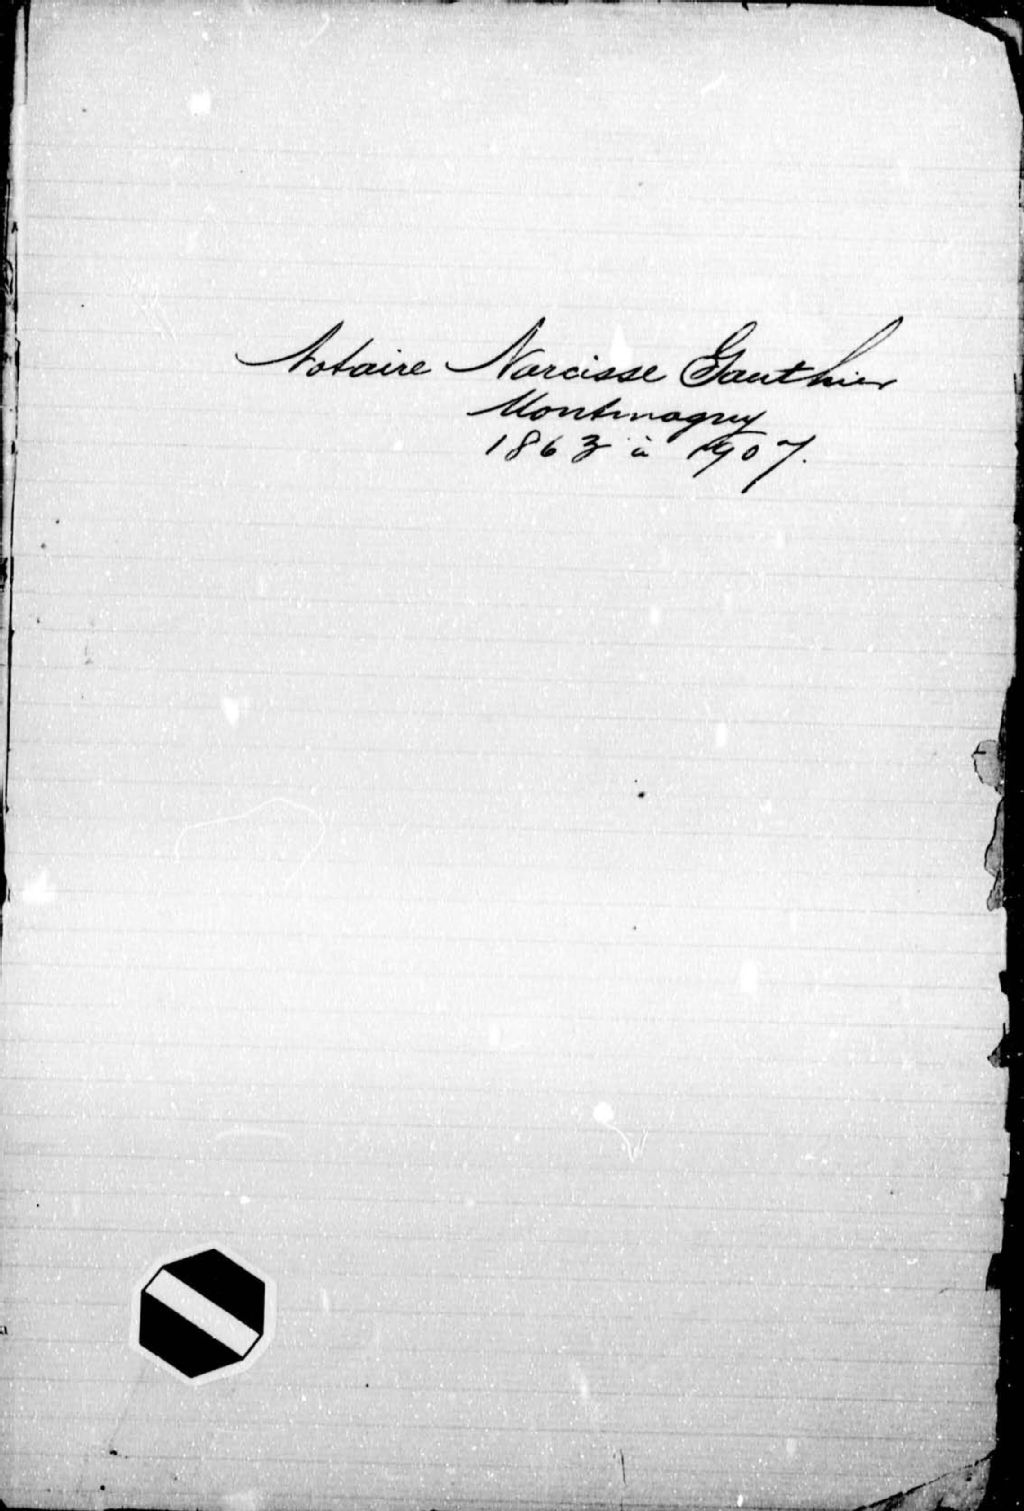 Notaire Narcisse Gauthier
Montmagny
1863 à 1907.